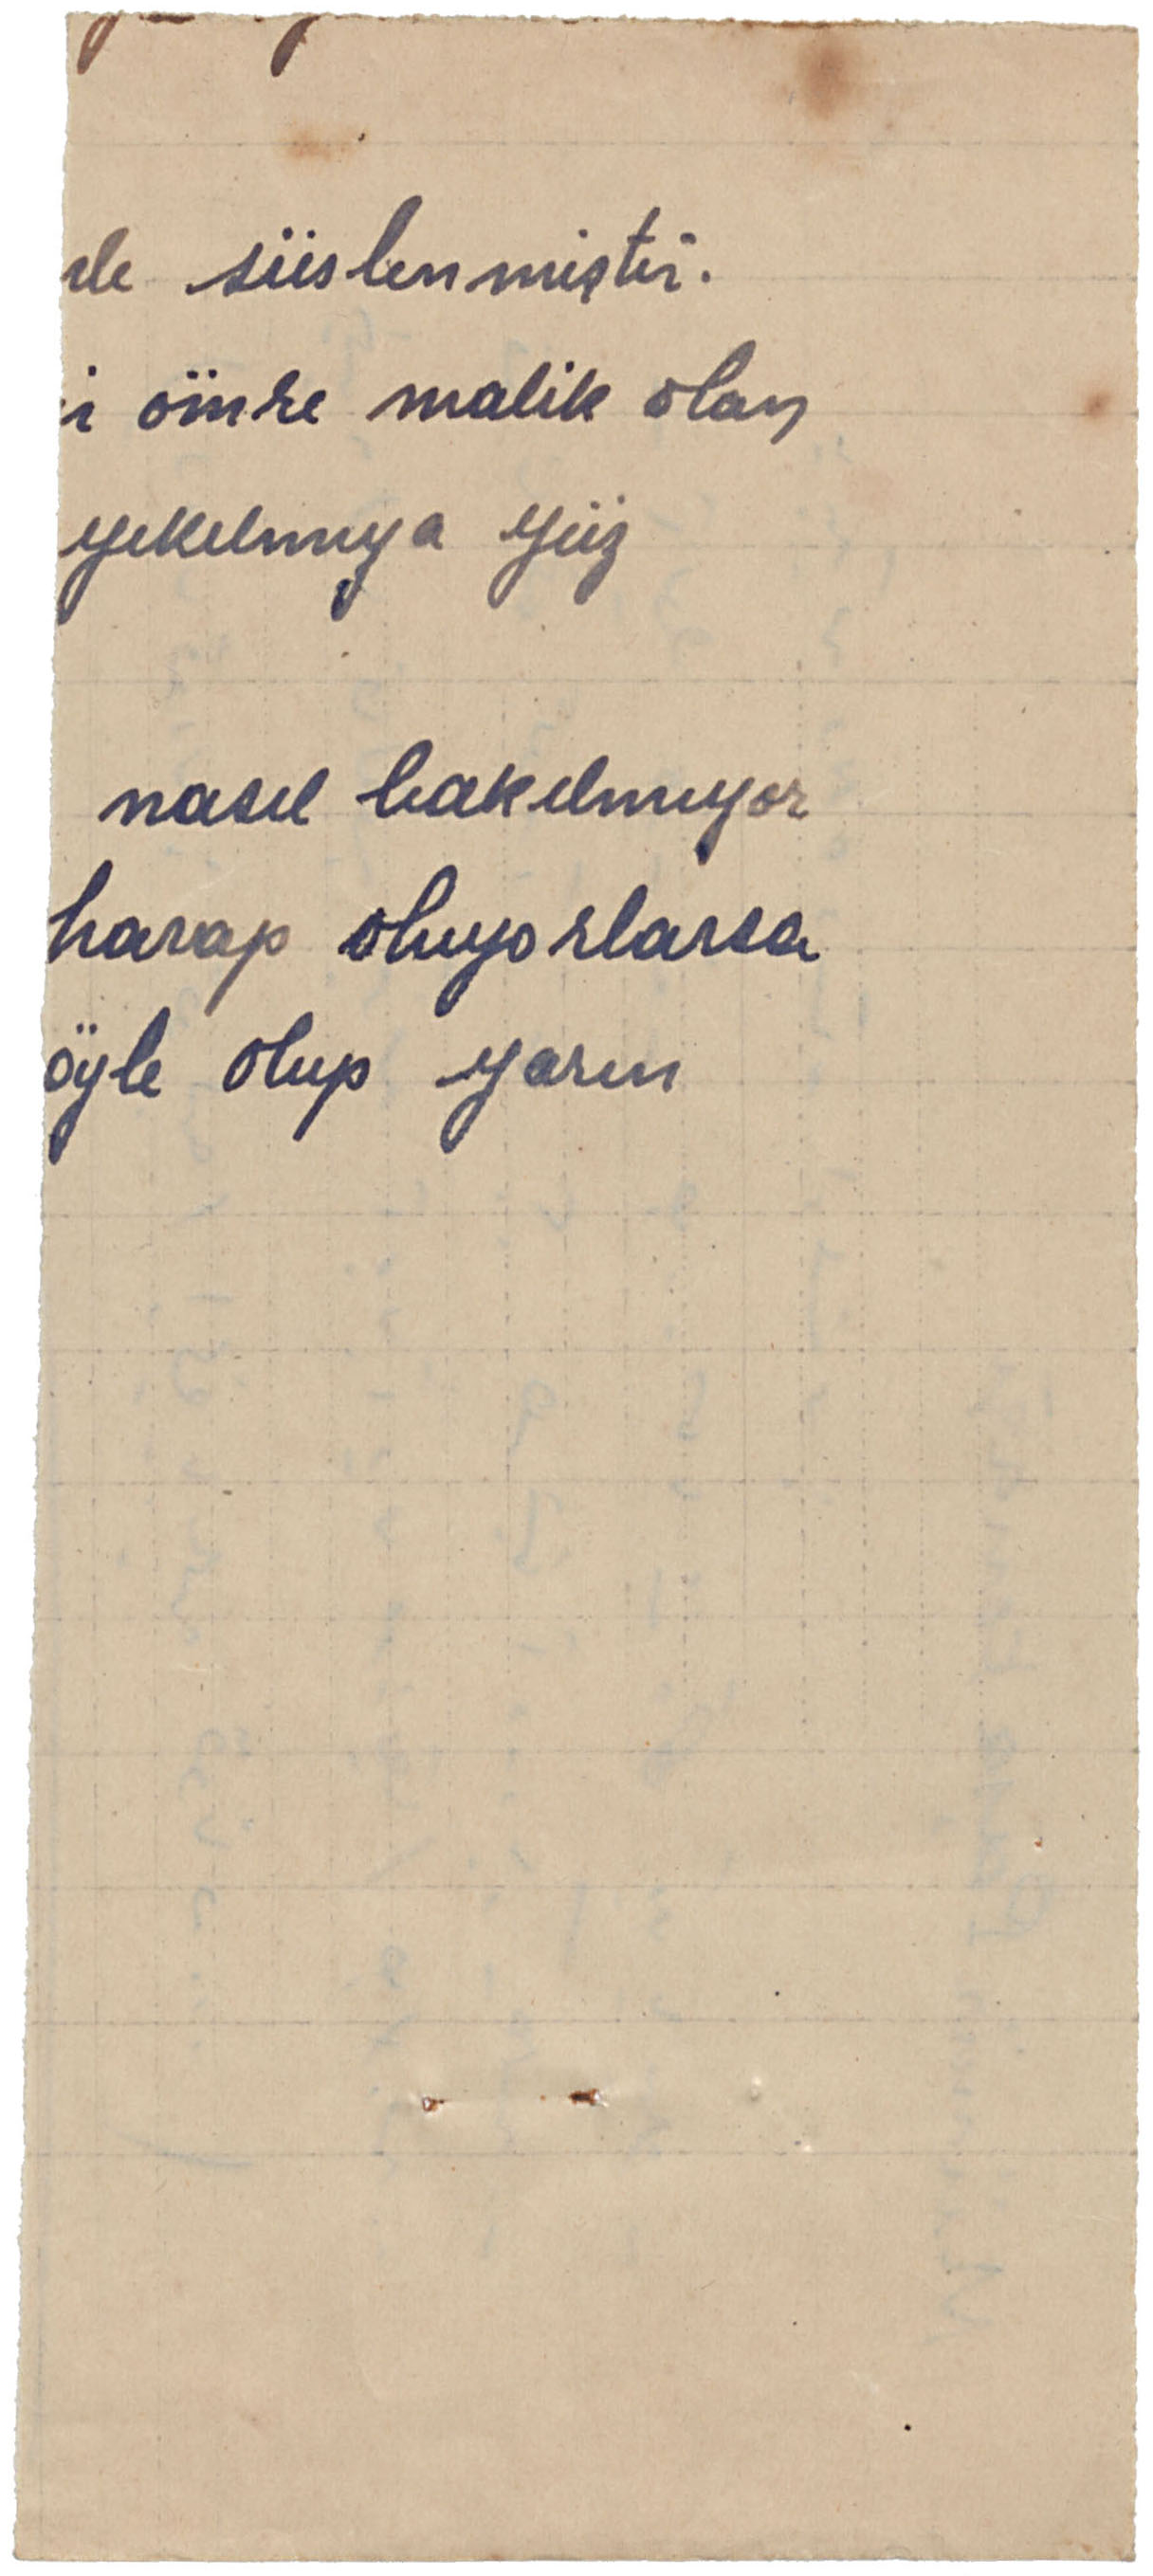 le süslenmiştir.
i ömre malik olan
yıkılmıya yüz
nasıl bakılmıyor
harap oluyorlarsa
öyle olup yarın